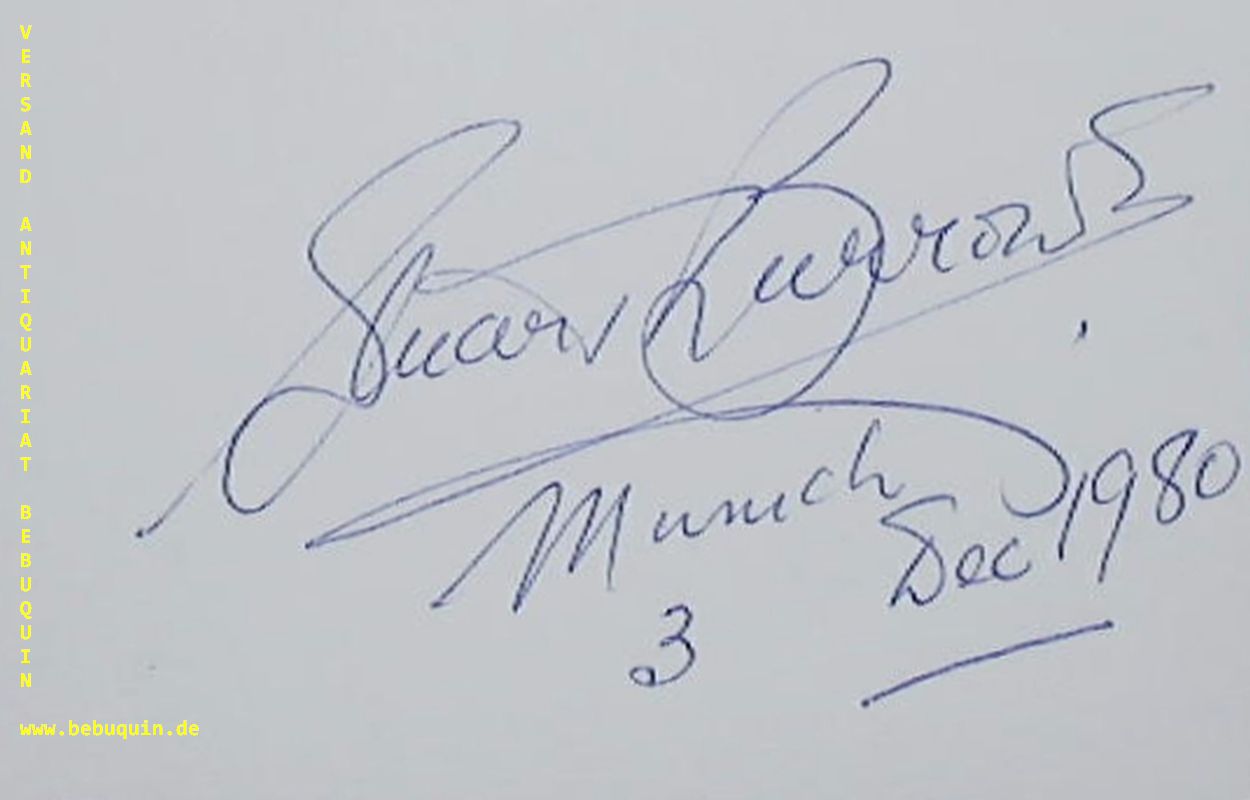 VERSAND ANTIQUARIAT BEBUQUIN
Stuart Burrows
Munich
3 Dec 1980
www.bebuquin.de